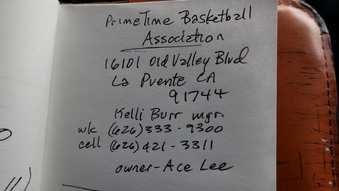 PrimeTime Basketball
Association
16101 Old Valley Blvd
La Puente CA
91744
Kelli Burr mgr.
wk (626) 333-9300
cell (626) 421-3311
owner-Ace Lee